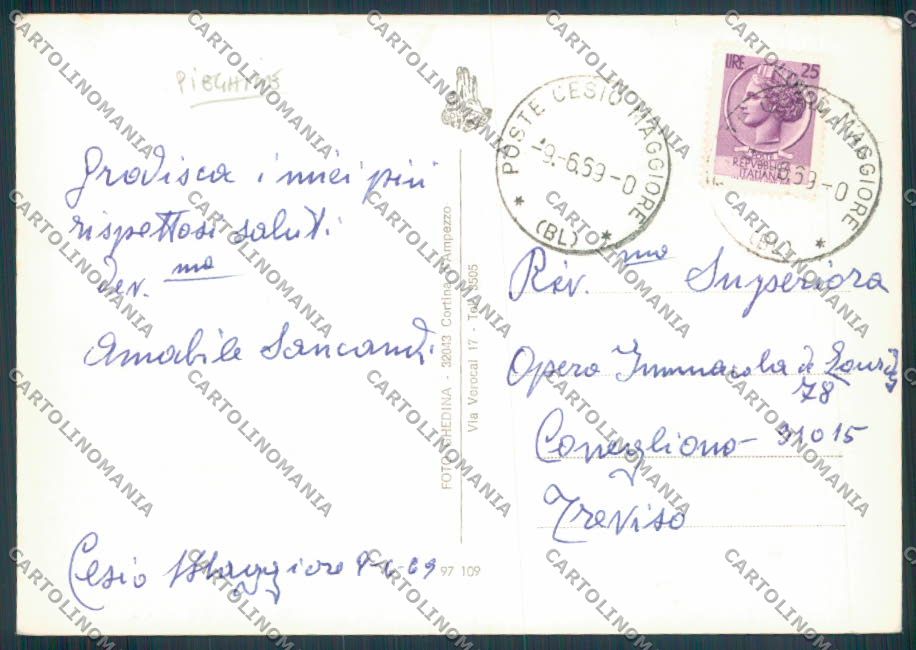 PIEGHINE
Gradisca i miei più
rispettosi saluti
dev. ma
Amabile Sancandi
Cesio Maggiore 9-6-69
FOTO GHEDINA - 32043 Cortina d'Ampezzo
Via Verocai 17 - Tel. 3505
97 109
POSTE CESIO MAGGIORE
-9.-6.69-0
* (BL) *
LIRE 25
POSTE
REPVBBLICA
ITALIANA
MAGGIORE
6.69-0
(BL) *
Rev. ma Superiora
Opera Immacola di Lourdes
78
Conegliano - 31015
Treviso
CARTOLINOMANIA